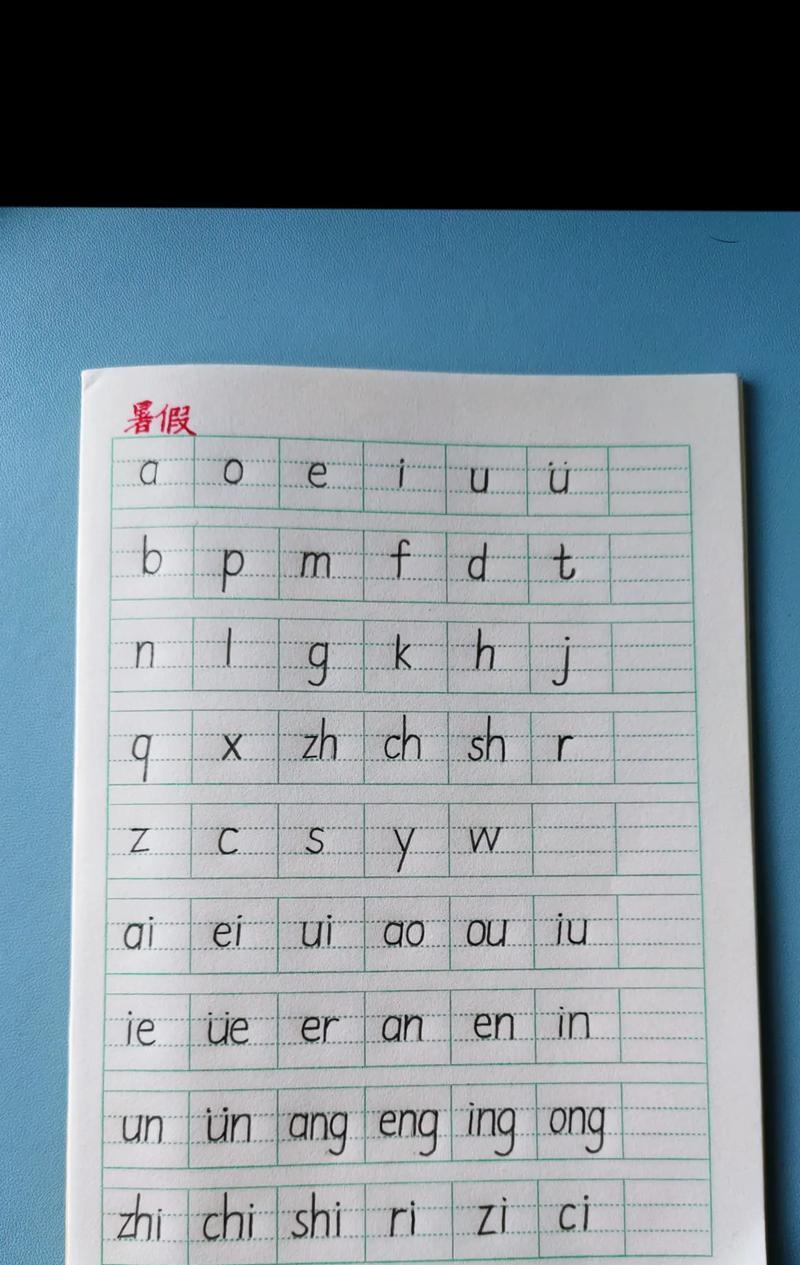 暑假
a o e i u ü
b p m f d t
n l g k h j
q x zh ch sh r
z c s y w
ai ei ui ao ou iu
ie üe er an en in
un ün ang eng ing ong
zhi chi shi ri zi ci